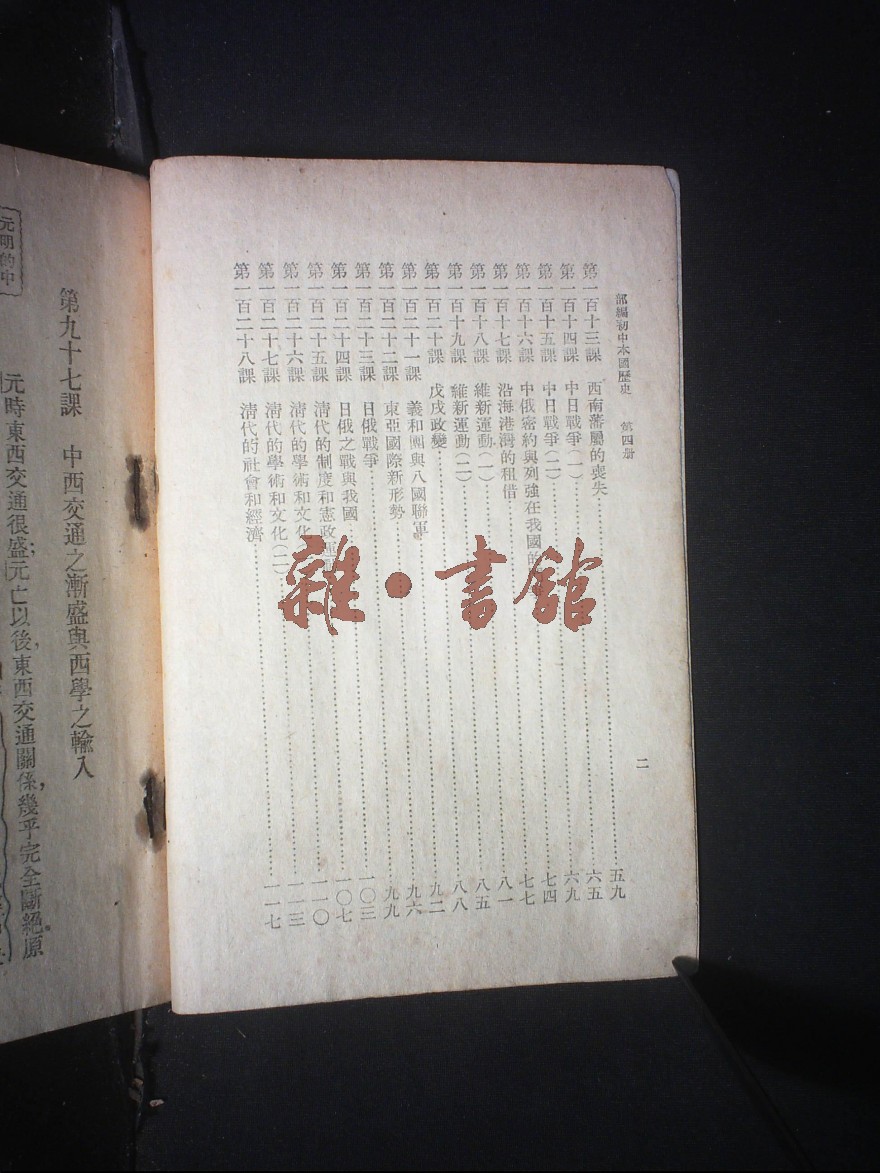 部編初中本國歷史 第四册 二
第一百十三課 西南藩屬的喪失……五九
第一百十四課 中日戰爭(一)……六五
第一百十五課 中日戰爭(二)……六九
第一百十六課 中俄密約與列強在我國的……七四
第一百十七課 沿海港灣的租借……七七
第一百十八課 維新運動(一)……八一
第一百十九課 維新運動(二)……八五
第一百二十課 戊戌政變……八八
第一百二十一課 義和團與八國聯軍……九二
第一百二十二課 東亞國際新形勢……九六
第一百二十三課 日俄戰爭……九九
第一百二十四課 日俄之戰與我國……一〇三
第一百二十五課 清代的制度和憲政運……一〇七
第一百二十六課 清代的學術和文化……一一〇
第一百二十七課 清代的學術和文化(二)……一一三
第一百二十八課 清代的社會和經濟……一一七
雜·書館
第九十七課 中西交通之漸盛與西學之輸入
元明的中
元時東西交通很盛;元亡以後,東西交通關係,幾乎完全斷絕。原